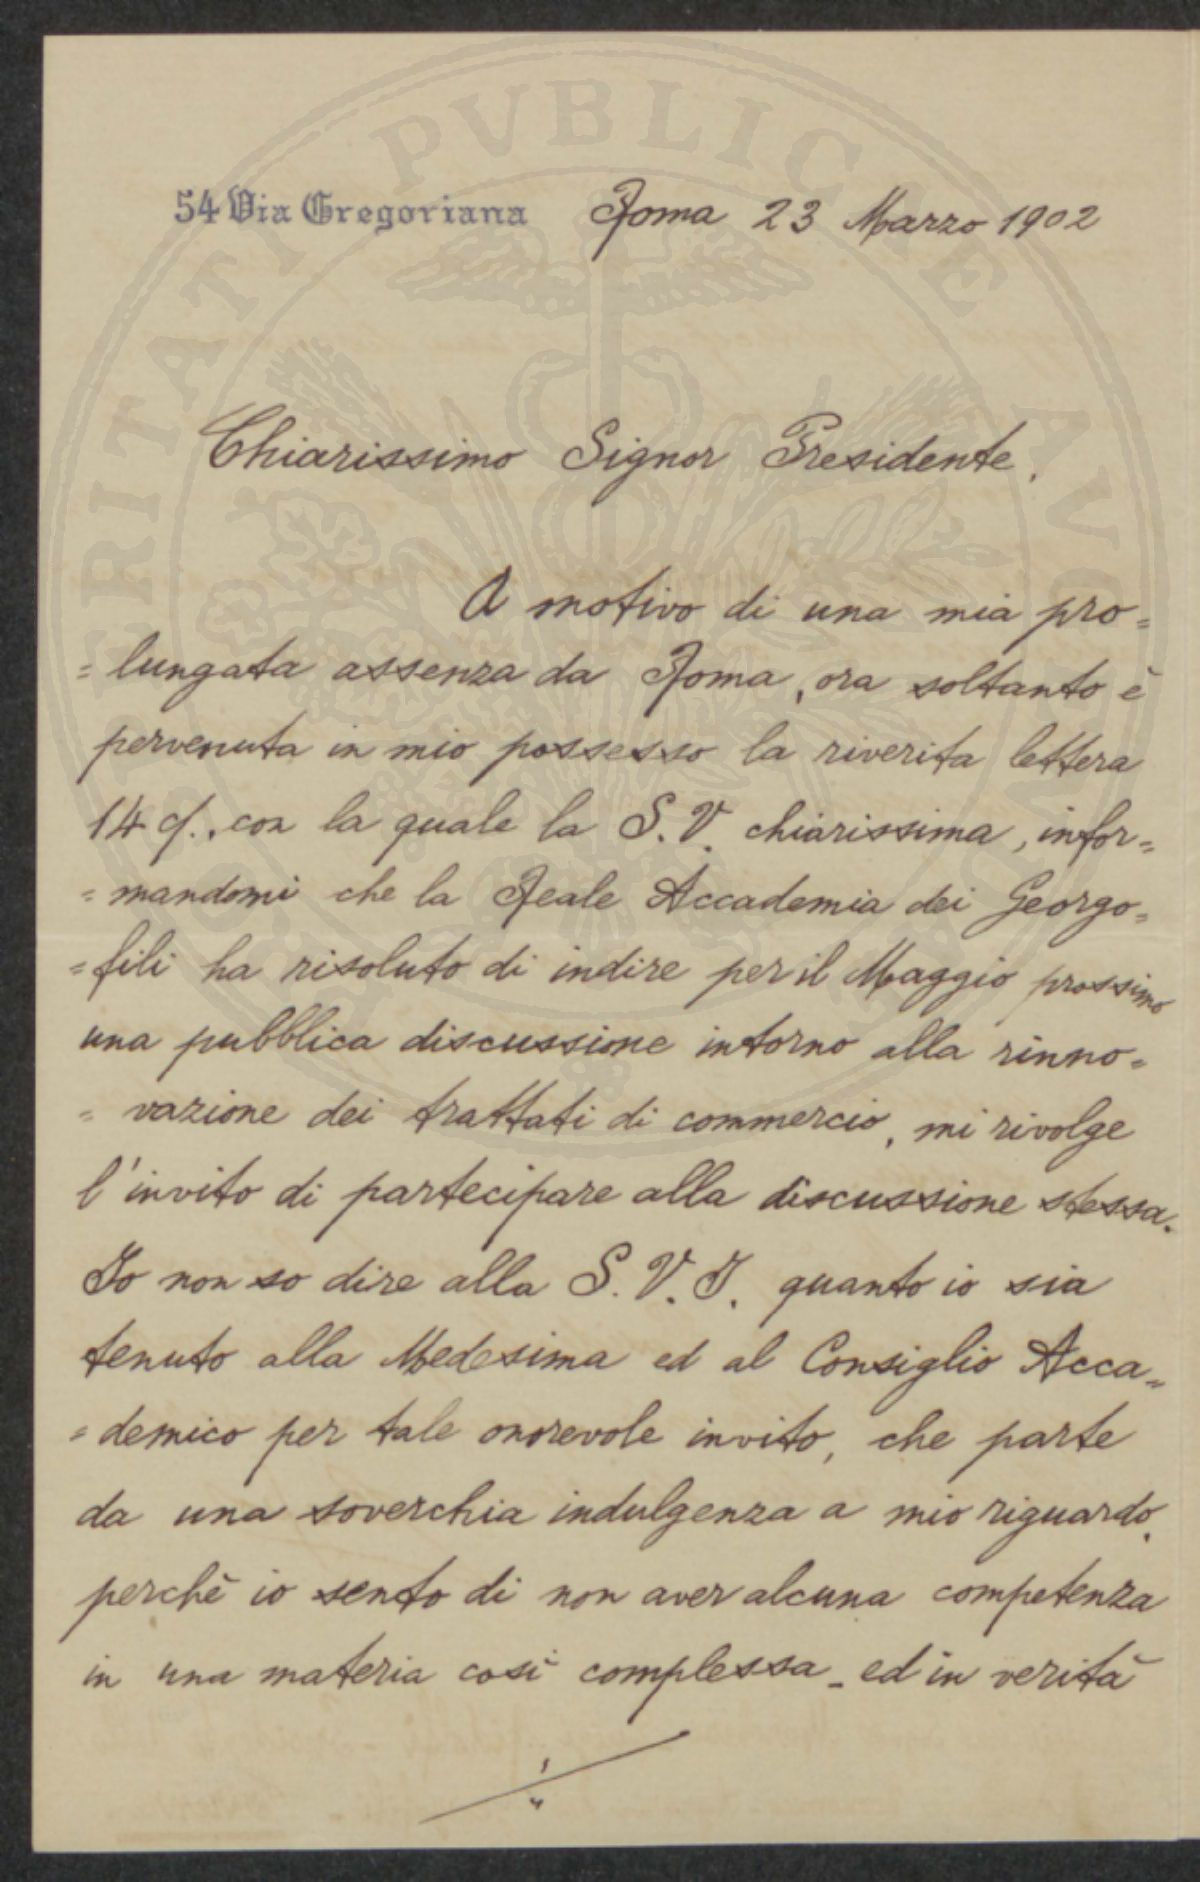 54 Via Gregoriana Roma 23 Marzo 1902
Chiarissimo Signor Presidente,
A motivo di una mia pro=
=lungata assenza da Roma, ora soltanto è
pervenuta in mio possesso la riverita lettera
14 c/., con la quale la S. V. chiarissima, infor=
=mandomi che la Reale Accademia dei Georgo=
=fili ha risoluto di indire per il Maggio prossimo
una pubblica discussione intorno alla rinno=
=vazione dei trattati di commercio, mi rivolge
l'invito di partecipare alla discussione stessa.
Io non so dire alla S. V. I. quanto io sia
tenuto alla Medesima ed al Consiglio Acca=
=demico per tale onorevole invito, che parte
da una soverchia indulgenza a mio riguardo,
perchè io sento di non aver alcuna competenza
in una materia così complessa - ed in verità
./.
PROSPERITATI PVBLICAE AVGENDAE